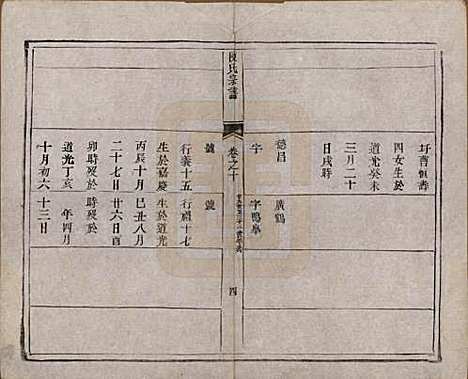 圩曹恒壽
四女生於
道光癸未
三月二十
日戌時
德昌
字
號
行義十五
生於嘉慶
丙辰十月
二十七日
卯時歿於
道光丁亥
十月初六
廣鶴
字鳴皋
號
行禮十七
生於道光
己丑八月
廿六日酉
時歿於
年四月
十三日
陳氏宗譜
卷之十
四